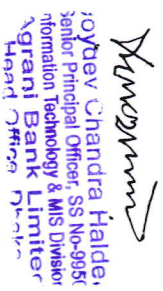 Joydev Chandra Halde
Senior Principal Officer, SS No-995
nformation Technology & MIS Division
Agrani Bank Limite
Head Office